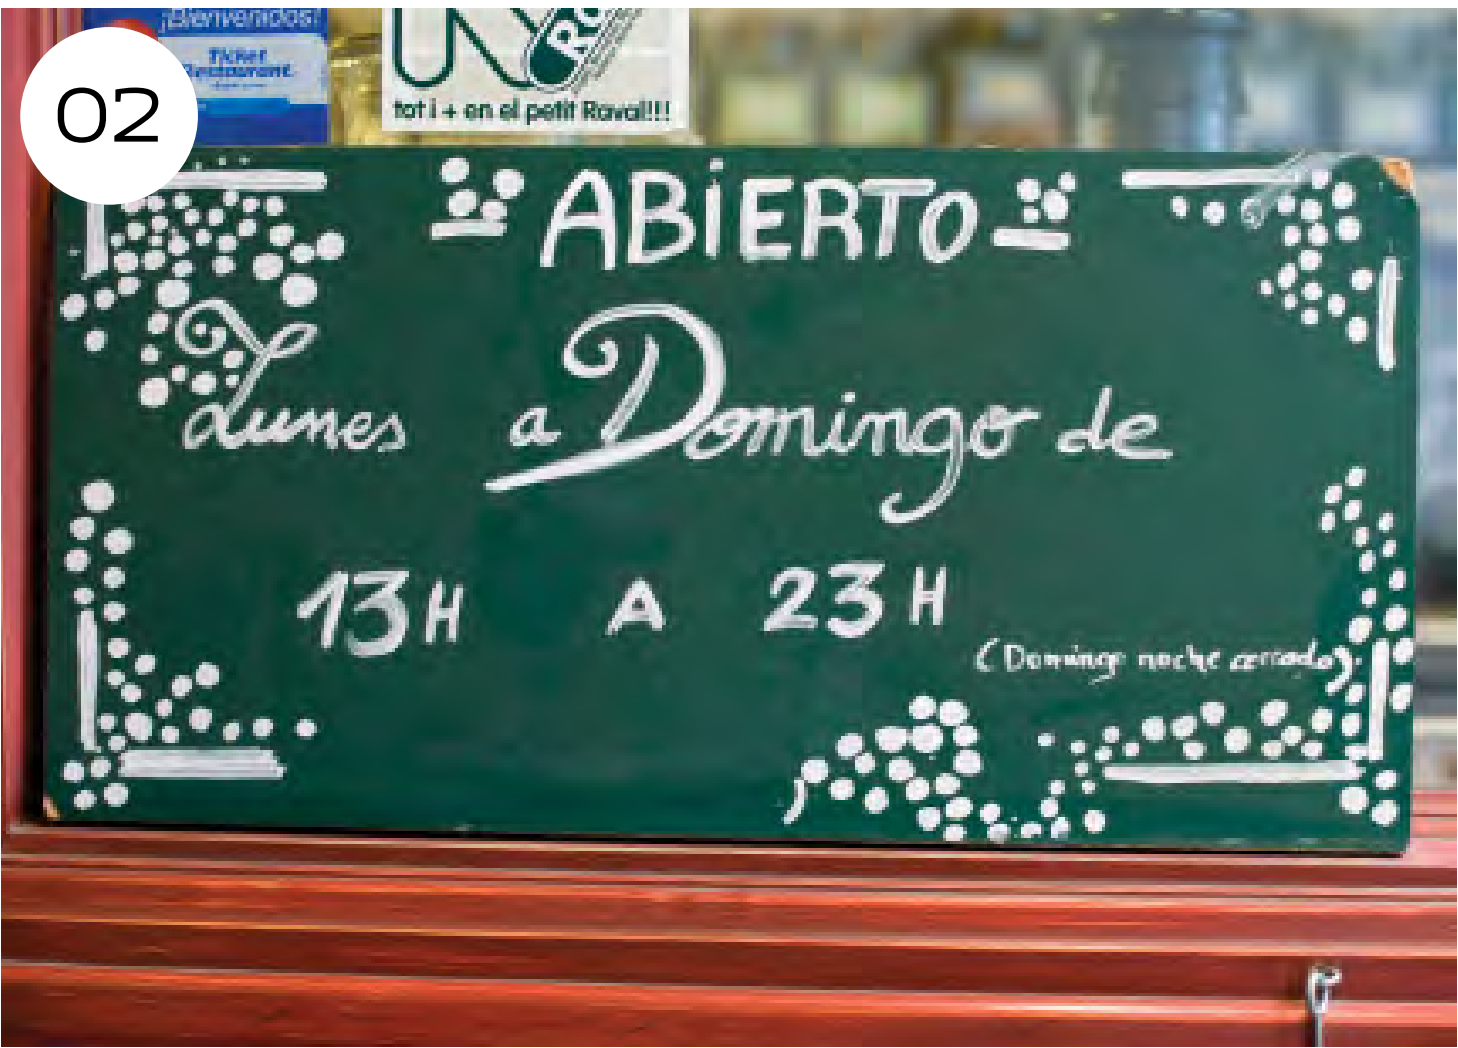 02
¡Bienvenidos!
Ticket
Restaurant
tot i + en el petit Raval!!!
ABiERTO
Lunes a Domingo de
13H A 23H
(Domingo noche cerrado)